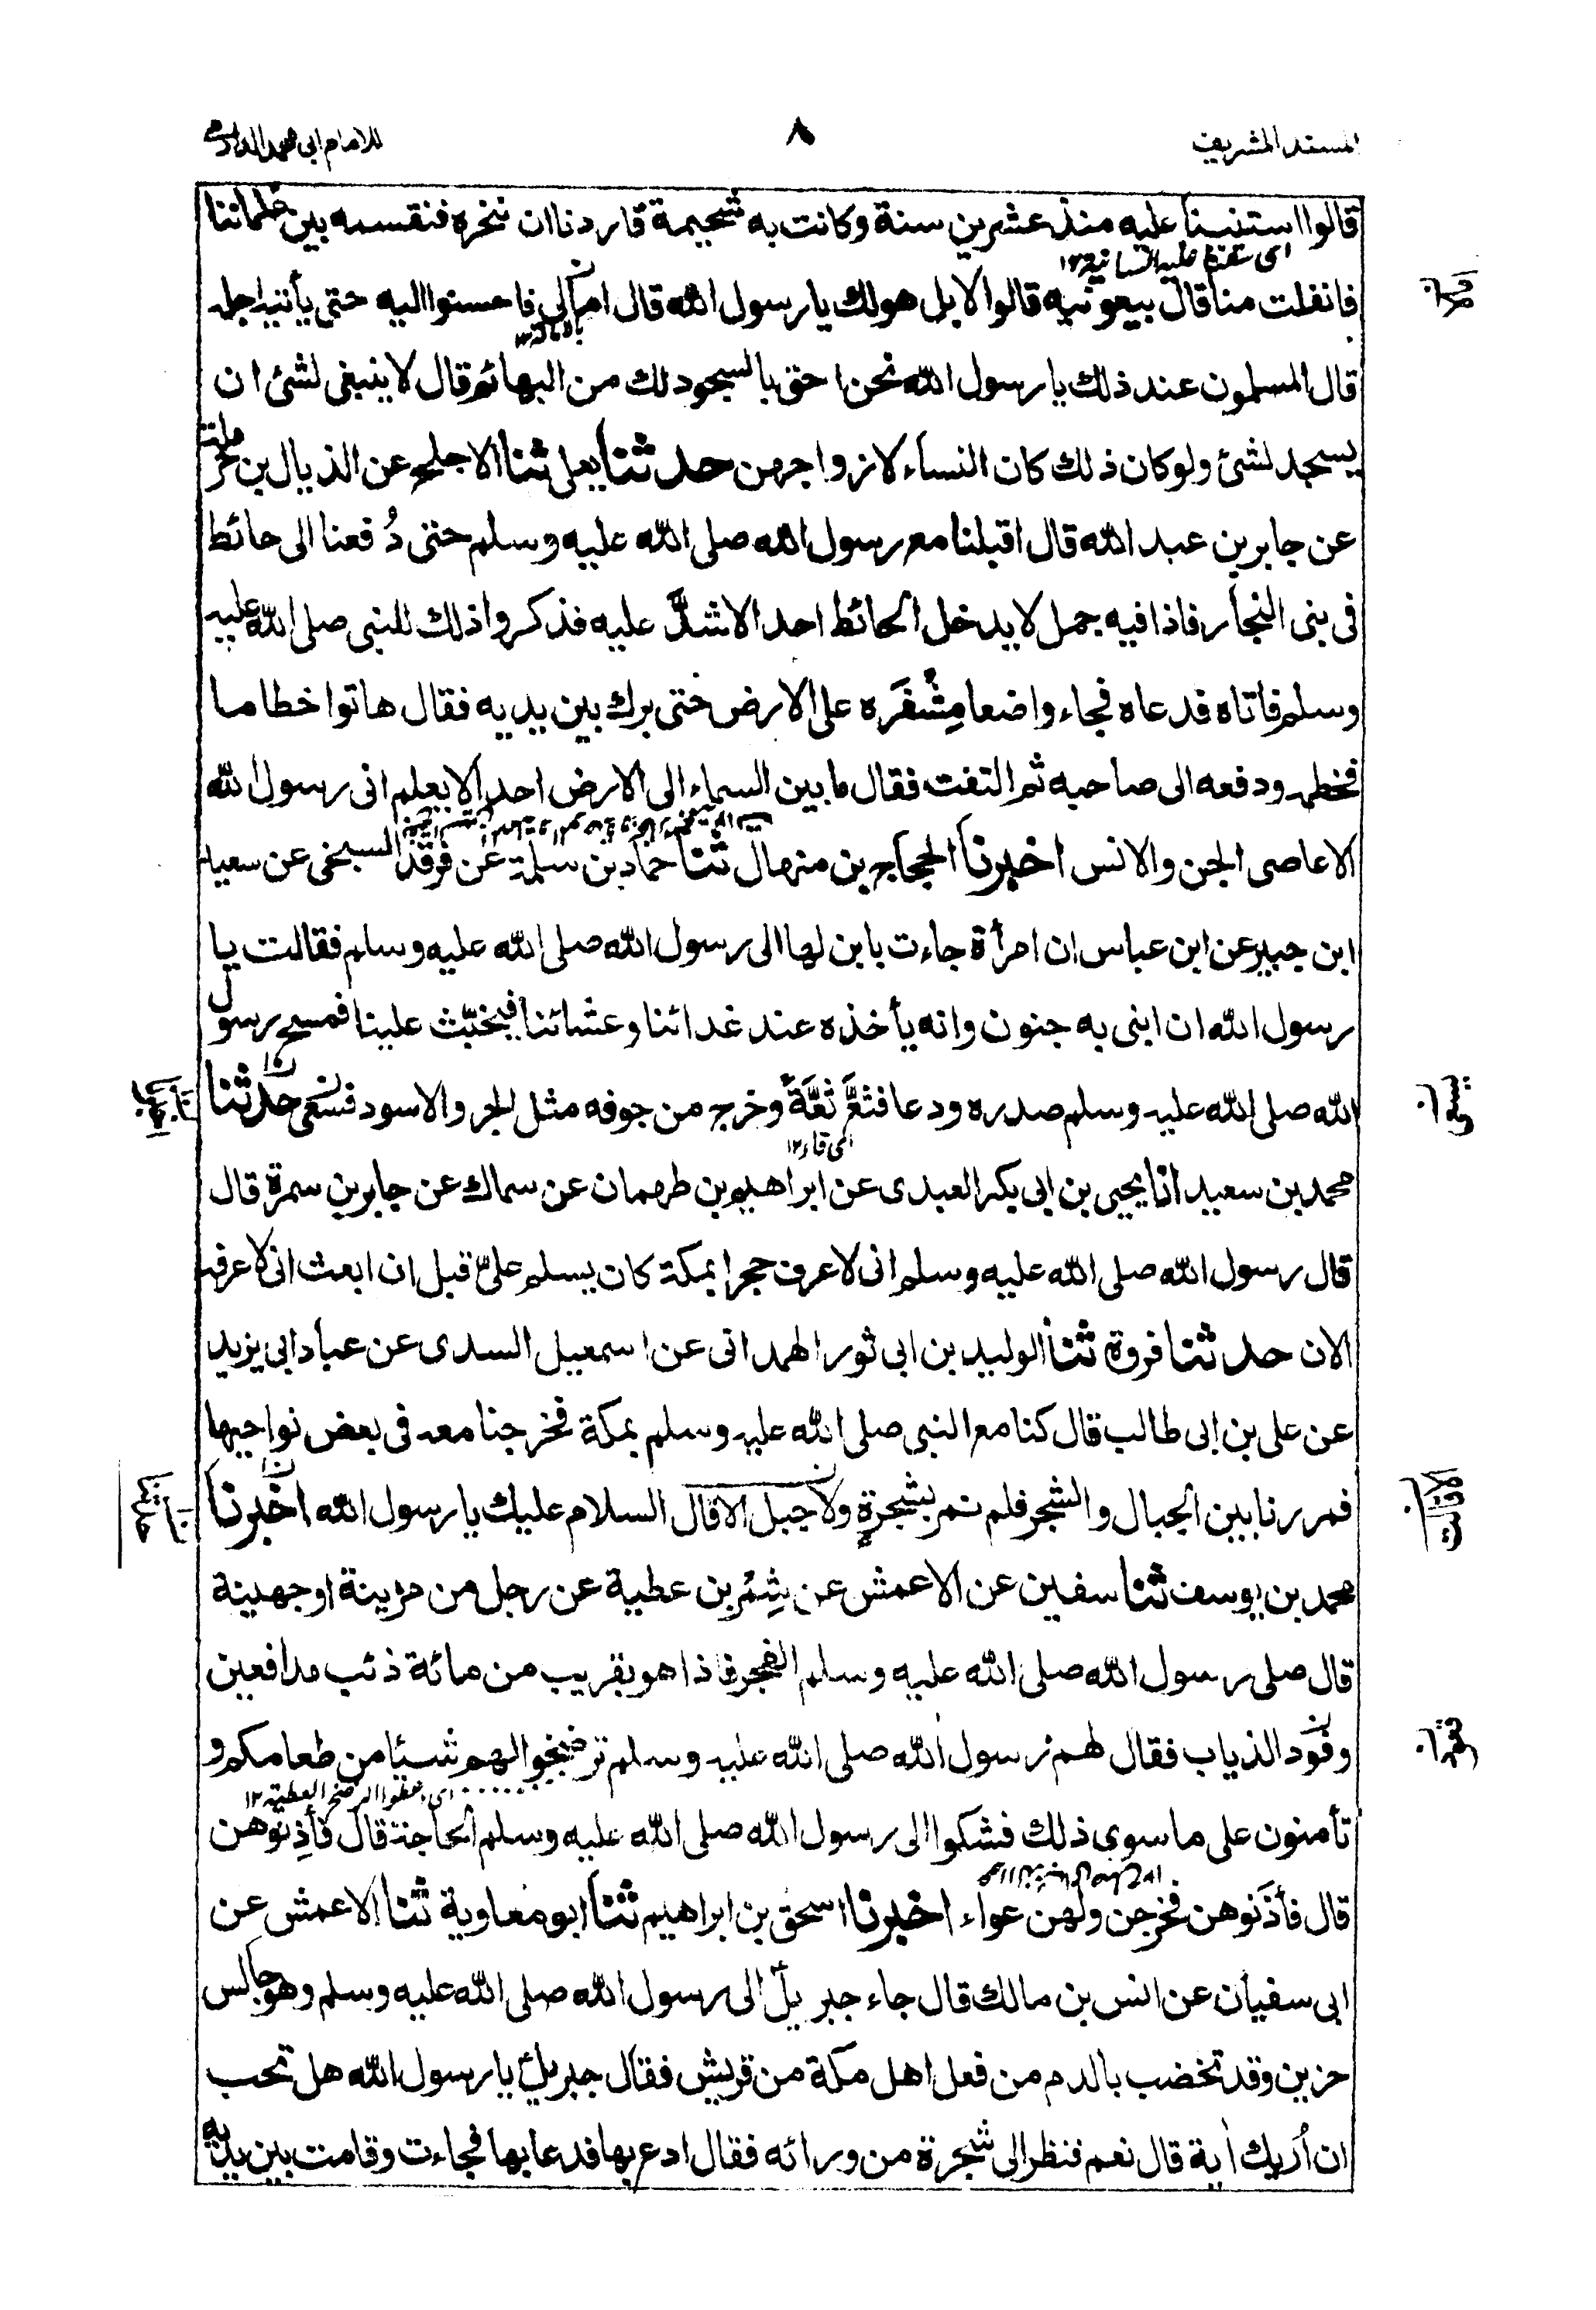 المسند الشريف
٨
للامام ابى محمد الدارمى
قالوا استنينا عليه منذ عشرين سنة وكانت به شحيمة فاردنا ان ننحره فنقسمه بين غلماننا
فانفلت منا قال بيعونيه قالوا لا بل هو لك يا رسول الله قال اما لى فاحسنوا اليه حتى يأتيه اجله
بالامالة ١٢
قال المسلمون عند ذلك يا رسول الله نحن احق بالسجود لك من البهائم قال لا ينبغى لشئ ان
يسجد لشئ ولو كان ذلك كان النساء لازواجهن حدثنا يعلى ثنا الاجلح عن الذيال بن حرملة
عن جابر بن عبد الله قال اقبلنا مع رسول الله صلى الله عليه وسلم حتى دُفعنا الى حائط
فى بنى النجار فاذا فيه جمل لا يدخل الحائط احد الا شدَّ عليه فذكروا ذلك للنبى صلى الله عليه
وسلم فاتاه فدعاه فجاء واضعا مِشْفَره على الارض حتى برك بين يديه فقال هاتوا خطاما
فخطمه ودفعه الى صاحبه ثم التفت فقال ما بين السماء الى الارض احد الا يعلم انى رسول الله
الا عاصى الجن والانس اخبرنا الحجاج بن منهال ثنا حماد بن سلمة عن فرقد السبخى عن سعيد
ابن جبير عن ابن عباس ان امرأة جاءت بابن لها الى رسول الله صلى الله عليه وسلم فقالت يا
رسول الله ان ابنى به جنون وانه يأخذه عند غدائنا وعشائنا فيخبّث علينا فمسح رسول
الله صلى الله عليه وسلم صدره ودعا فثعَّ ثعَّةً وخرج من جوفه مثل الجرو الاسود فسعى حدثنا
اى قاء ١٢
محمد بن سعيد انا يحيى بن ابى بكر العبدى عن ابراهيم بن طهمان عن سماك عن جابر بن سمرة قال
قال رسول الله صلى الله عليه وسلم انى لاعرف حجرا بمكة كان يسلم علىّ قبل ان ابعث انى لاعرفه
الان حدثنا فروة ثنا الوليد بن ابى ثور الهمدانى عن اسمعيل السدى عن عباد ابى يزيد
عن على بن ابى طالب قال كنا مع النبى صلى الله عليه وسلم بمكة فخرجنا معه فى بعض نواحيها
فمررنا بين الجبال والشجر فلم نمر بشجرة ولا جبل الا قال السلام عليك يا رسول الله اخبرنا
لا قالت
محمد بن يوسف ثنا سفين عن الاعمش عن شِمْر بن عطية عن رجل من مزينة او جهينة
قال صلى رسول الله صلى الله عليه وسلم الفجر فاذا هو بقريب من مائة ذئب قد اقعين
وفود الذياب فقال لهم رسول الله صلى الله عليه وسلم ترضخوا لهم شيئا من طعامكم و
تأمنون على ما سوى ذلك فشكوا الى رسول الله صلى الله عليه وسلم الحاجة قال فأذِنوهن
قال فأذَنوهن فخرجن ولهن عواء اخبرنا اسحق بن ابراهيم ثنا ابو معاوية ثنا الاعمش عن
ابى سفيان عن انس بن مالك قال جاء جبريل الى رسول الله صلى الله عليه وسلم وهو جالس
حزين وقد تخضب بالدم من فعل اهل مكة من قريش فقال جبريل يا رسول الله هل تحب
ان اُريك أية قال نعم فنظر الى شجرة من ورائه فقال ادع بها فدعا بها فجاءت وقامت بين يديه